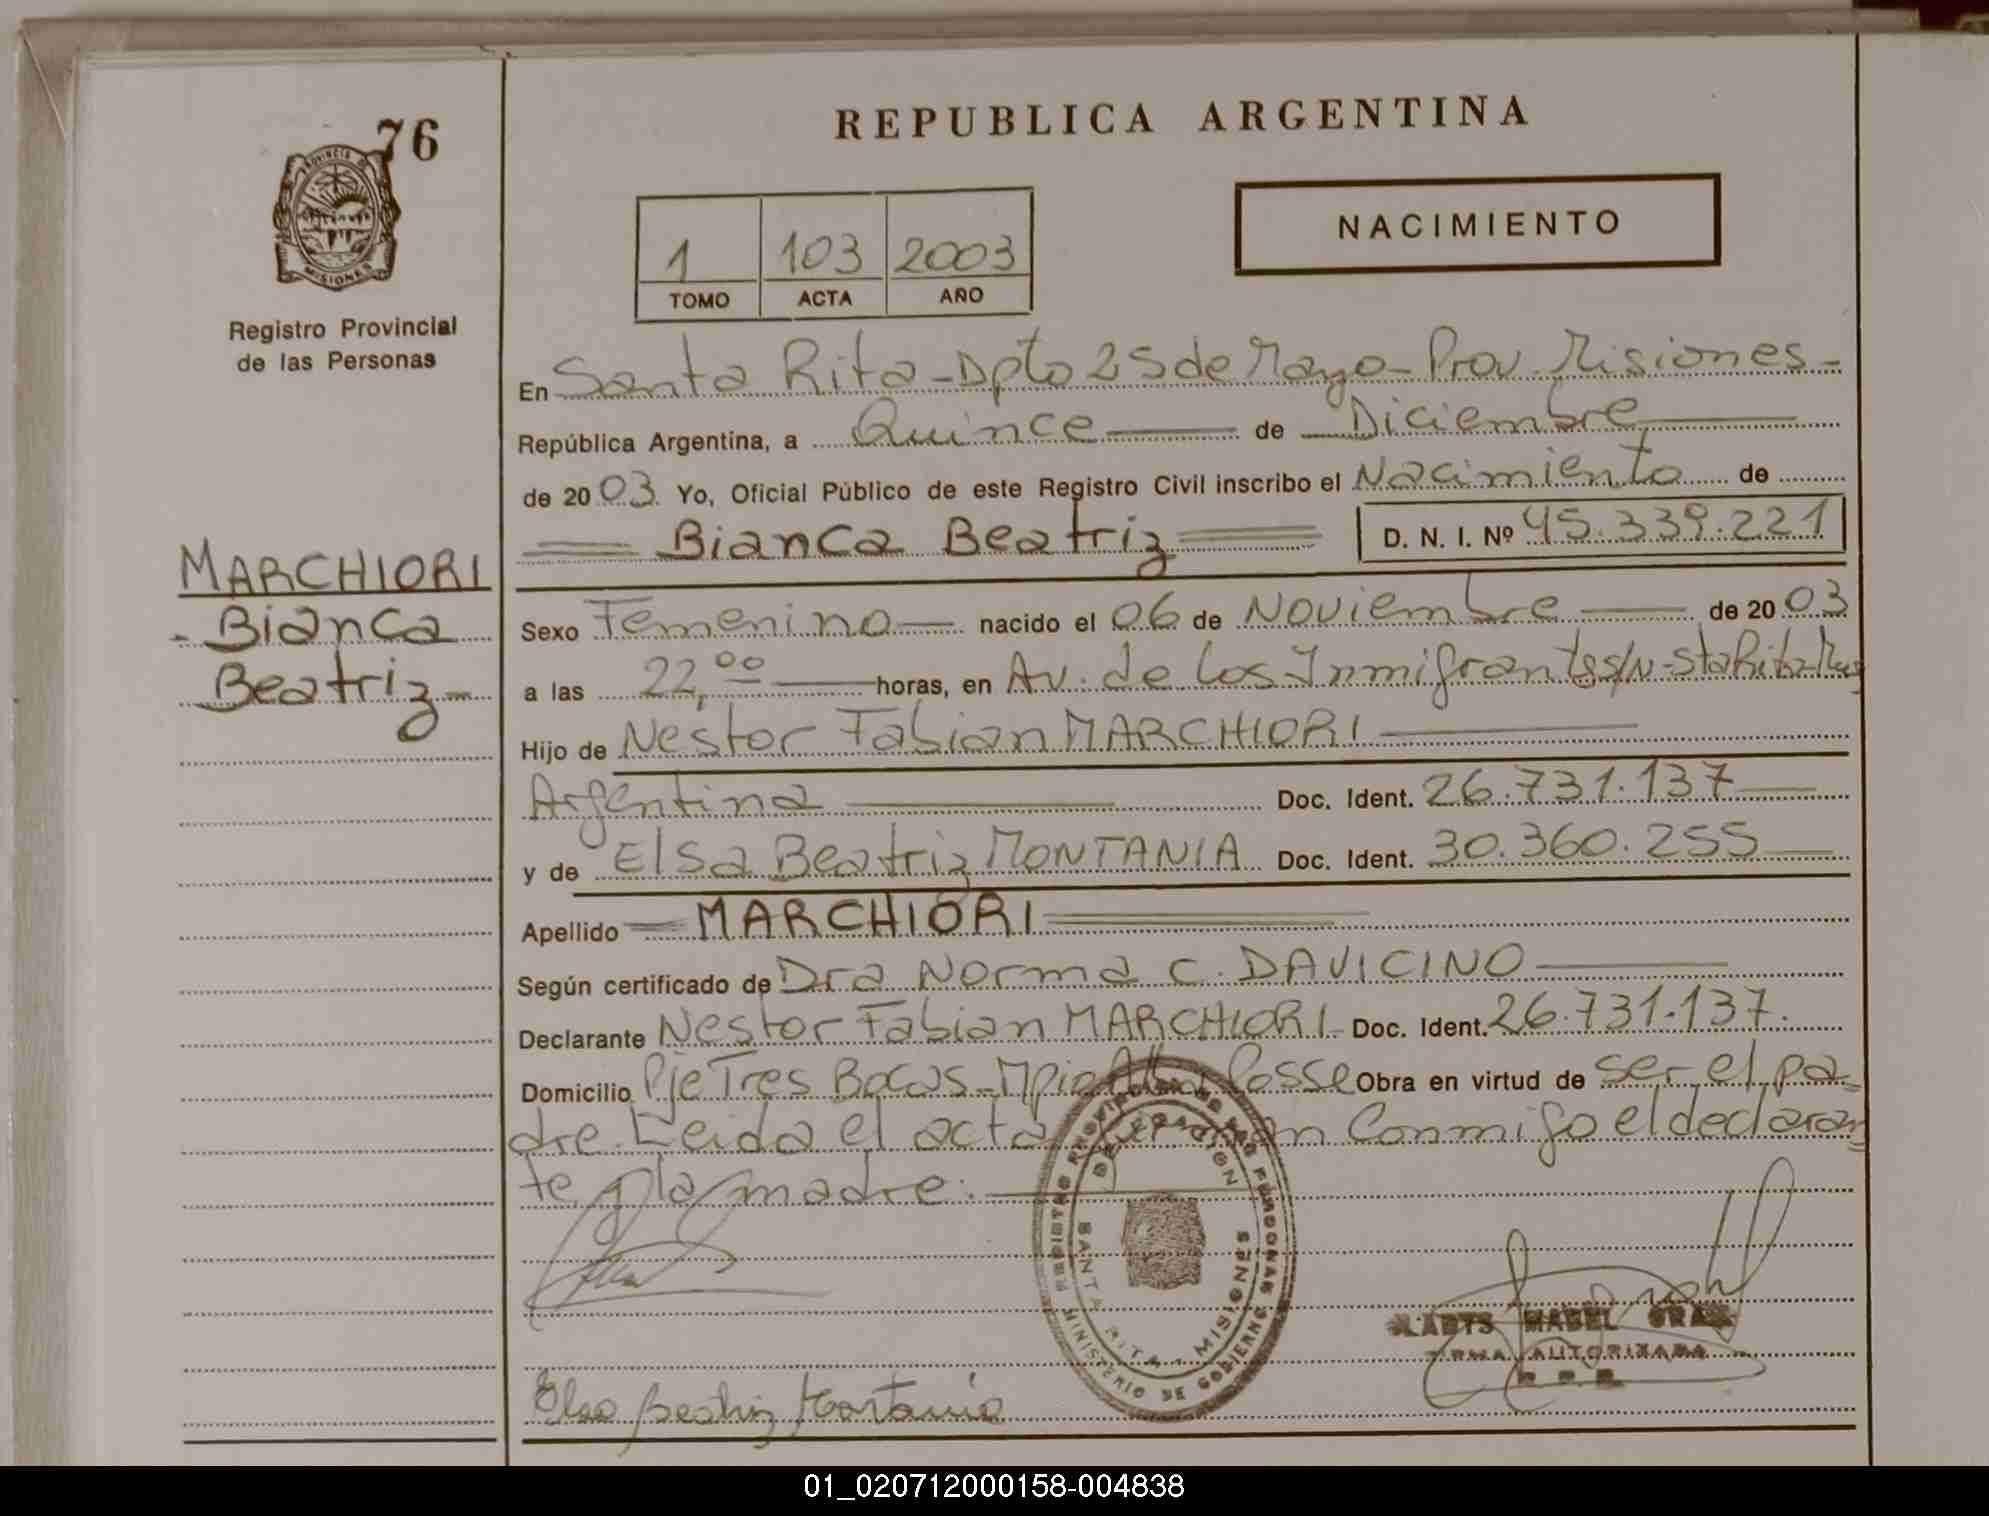 76
PROVINCIA DE MISIONES
Registro Provincial
de las Personas
MARCHIORI
Bianca
Beatriz
REPUBLICA ARGENTINA
1 103 2003
TOMO ACTA AÑO
NACIMIENTO
En Santa Rita - Dpto 25 de Mayo - Prov. Misiones -
República Argentina, a Quince de Diciembre
de 2003 Yo, Oficial Público de este Registro Civil inscribo el Nacimiento de
Bianca Beatriz D. N. I. Nº 45.339.221
Sexo Femenino nacido el 06 de Noviembre de 2003
a las 22,00 horas, en Av. de los Inmigrantes s/N - Sta Rita -
Hijo de Nestor Fabian MARCHIORI
Argentina Doc. Ident. 26.731.137
y de Elsa Beatriz MONTANIA Doc. Ident. 30.360.255
Apellido MARCHIORI
Según certificado de Dra Norma C. DAVICINO
Declarante Nestor Fabian MARCHIORI - Doc. Ident. 26.731.137.
Domicilio Pje Tres Bocas - Mpio Alba Posse Obra en virtud de ser el pa=
dre. Leida el acta firman conmigo el declaran=
te y la madre. -
REGISTRO PROVINCIAL DE LAS PERSONAS
DELEGACION
SANTA RITA - MISIONES
MINISTERIO DE GOBIERNO
GLADYS MABEL
FIRMA AUTORIZADA
Elsa Beatriz Montania
01_020712000158-004838